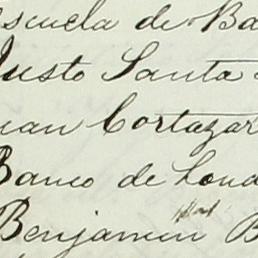 Escuela de Ba
Justo Santa
uan Cortazar
Banco de Lond
Benjamin B